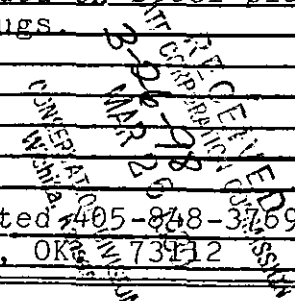 ugs.
RECEIVED
STATE CORPORATION COMMISSION
3-26-98
MAR 26
CONSERVATION DIVISION
Wichita, Kansas
ted 405-848-3769
, OK 73112